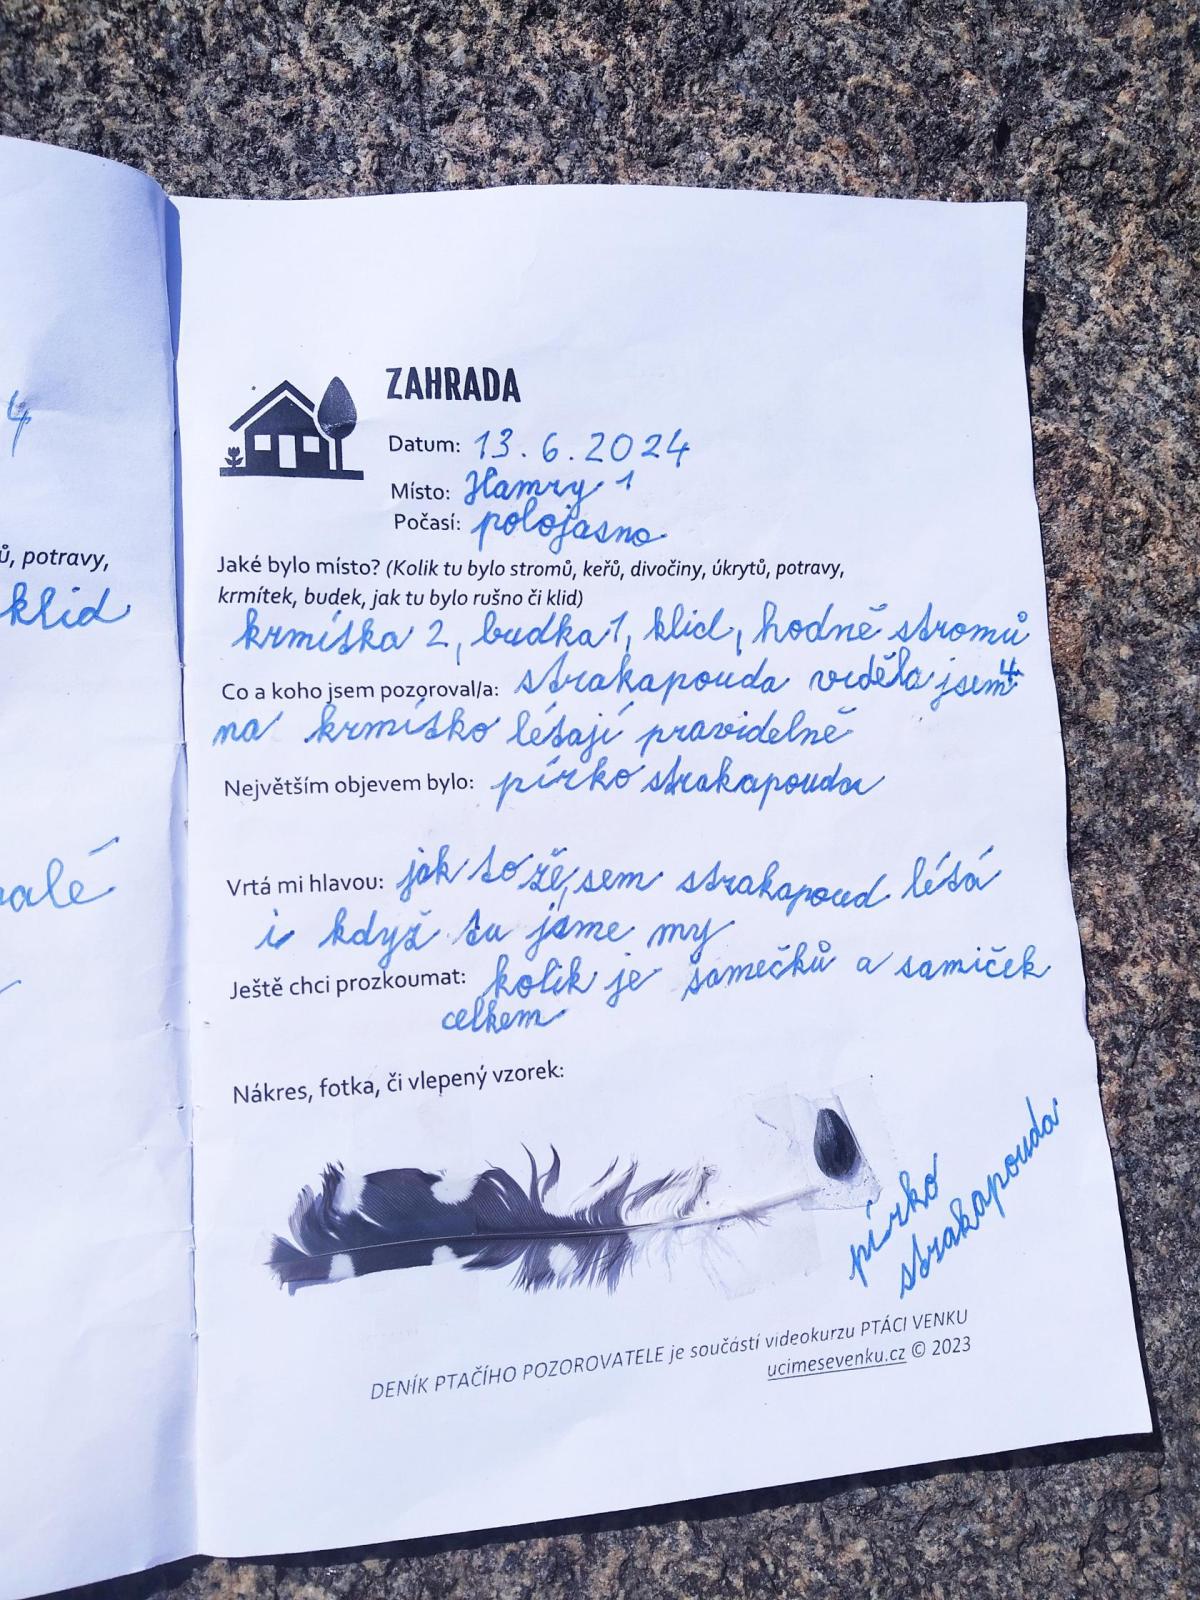 4
ů, potravy,
klid
alé
ZAHRADA
Datum: 13.6.2024
Místo: Hamry 1
Počasí: polojasno
Jaké bylo místo? (Kolik tu bylo stromů, keřů, divočiny, úkrytů, potravy,
krmítek, budek, jak tu bylo rušno či klid)
krmítka 2, budka 1, klid, hodně stromů
Co a koho jsem pozoroval/a: strakapouda viděla jsem 4
na krmítko létají pravidelně
Největším objevem bylo: pírko strakapouda
Vrtá mi hlavou: jak to že, sem strakapoud létá
i když tu jsme my
Ještě chci prozkoumat: kolik je samečků a samiček
celkem
Nákres, fotka, či vlepený vzorek:
pírko
strakapouda
DENÍK PTAČÍHO POZOROVATELE je součástí videokurzu PTÁCI VENKU
ucimesevenku.cz © 2023